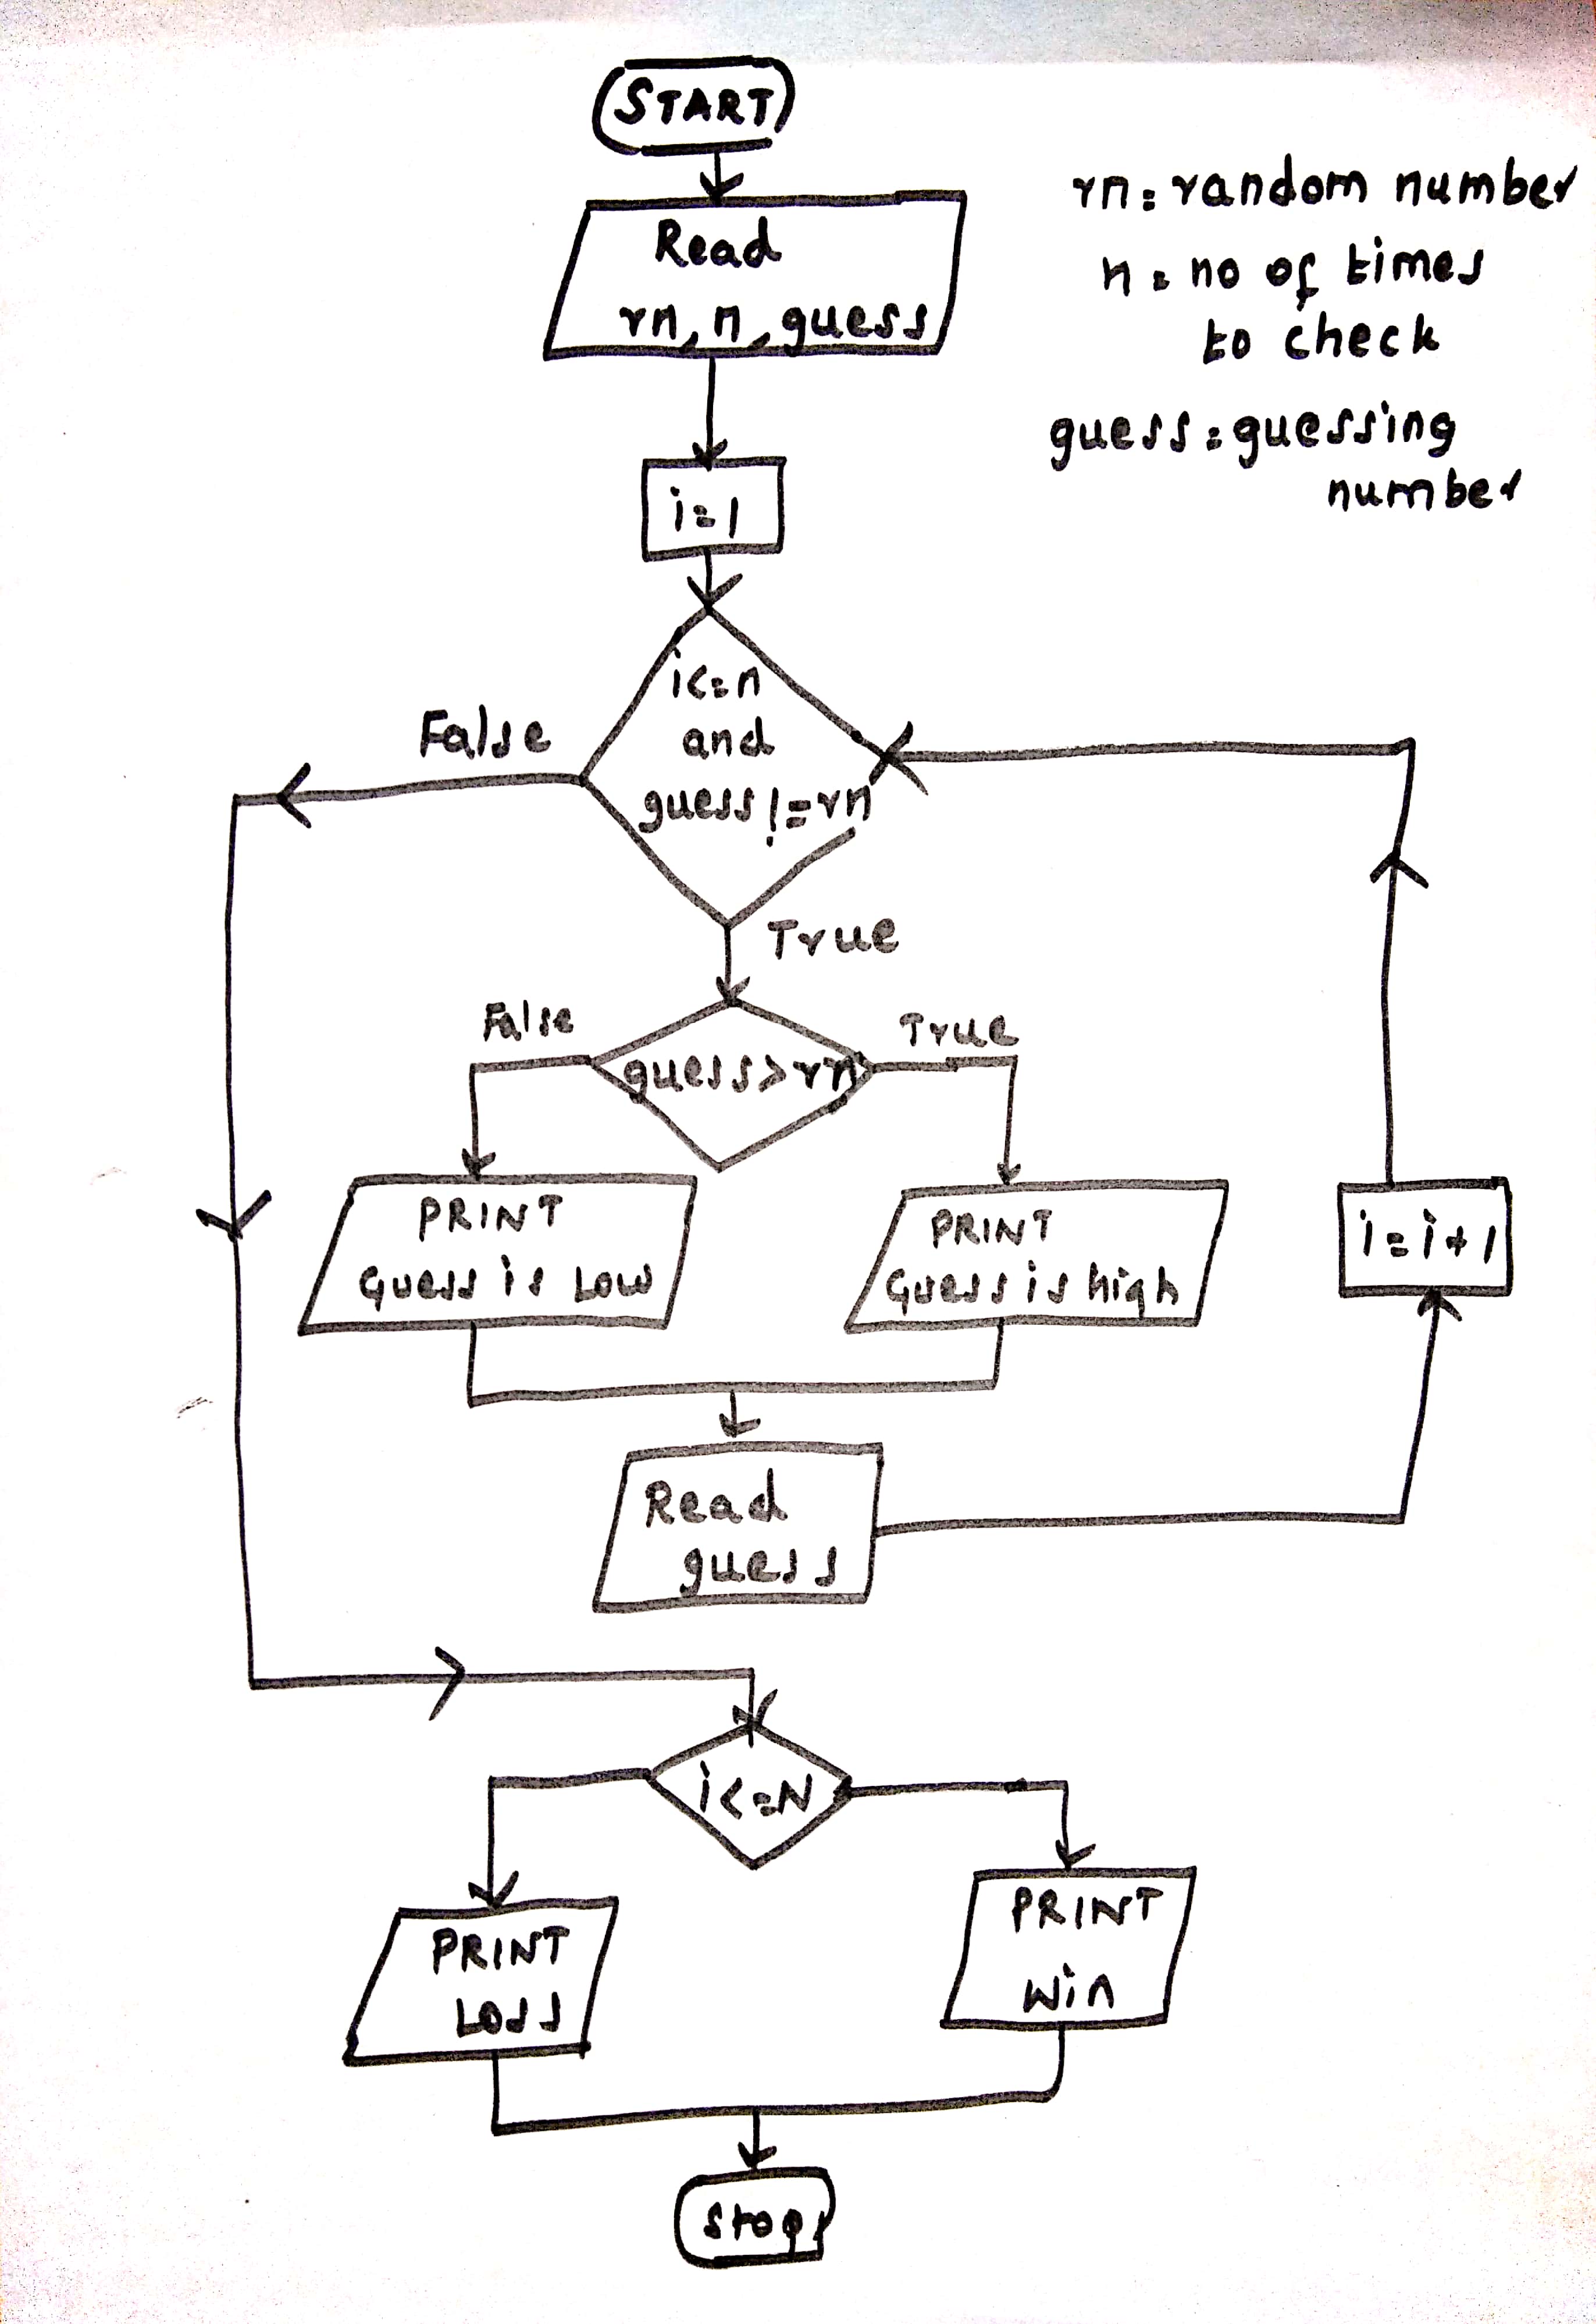 START
Read
rn, n, guess
rn = random number
n = no of times
to check
guess = guessing
number
i=1
i<=n
and
guess!=rn
False
True
guess>rn
False
True
PRINT
Guess is Low
PRINT
Guess is high
i=i+1
Read
guess
i<=N
PRINT
Loss
PRINT
Win
Stop